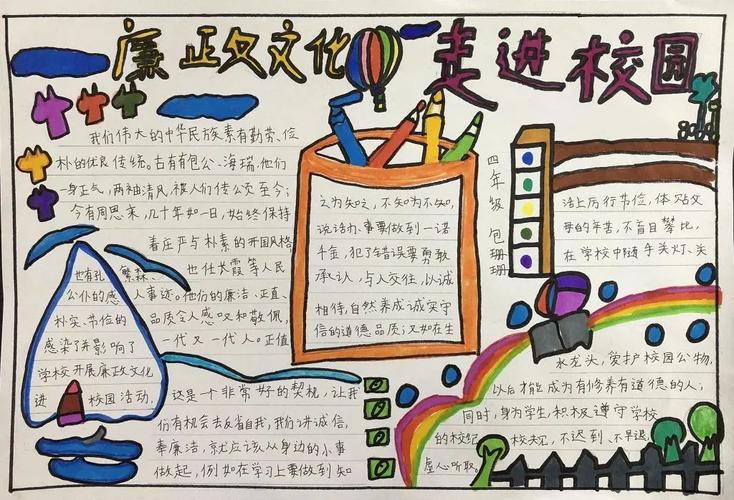 廉政文化 走进校园
我们伟大的中华民族素有勤劳、俭
朴的优良传统。古有有包公、海瑞,他们
一身正气,两袖清风,被人们传公交至今;
今有周恩来,几十年如一日,始终保持
着庄严与朴素的开国风格
也有孔 繁森、 也仕长霞等人民
公仆的感 人事迹。他们的廉洁、正直、
朴实、节俭的 品质令人感叹和敬佩,
感染了并影响了 一代又一代人。正值
学校开展廉政文化
进 校园活动,
这是一个非常好的契机,让我
们有机会去反省自我,我们讲诚信,
奉廉洁,就应该从身边的小事
做起,例如在学习上要做到知
之为知之,不知为不知,
说话办事要做到一诺
千金,犯了错误要勇敢
承认,与人交往,以诚
相待,自然养成诚实守
信的道德品质;又如在生
四年级 包珊珊
活上厉行节俭,体贴父
母的辛苦,不盲目攀比,
在学校中随手关灯、关
水龙头,爱护校园公物,
以后才能成为有修养有道德的人;
同时,身为学生,积极遵守学校
的校纪 校规,不迟到、不早退,
虚心听取。